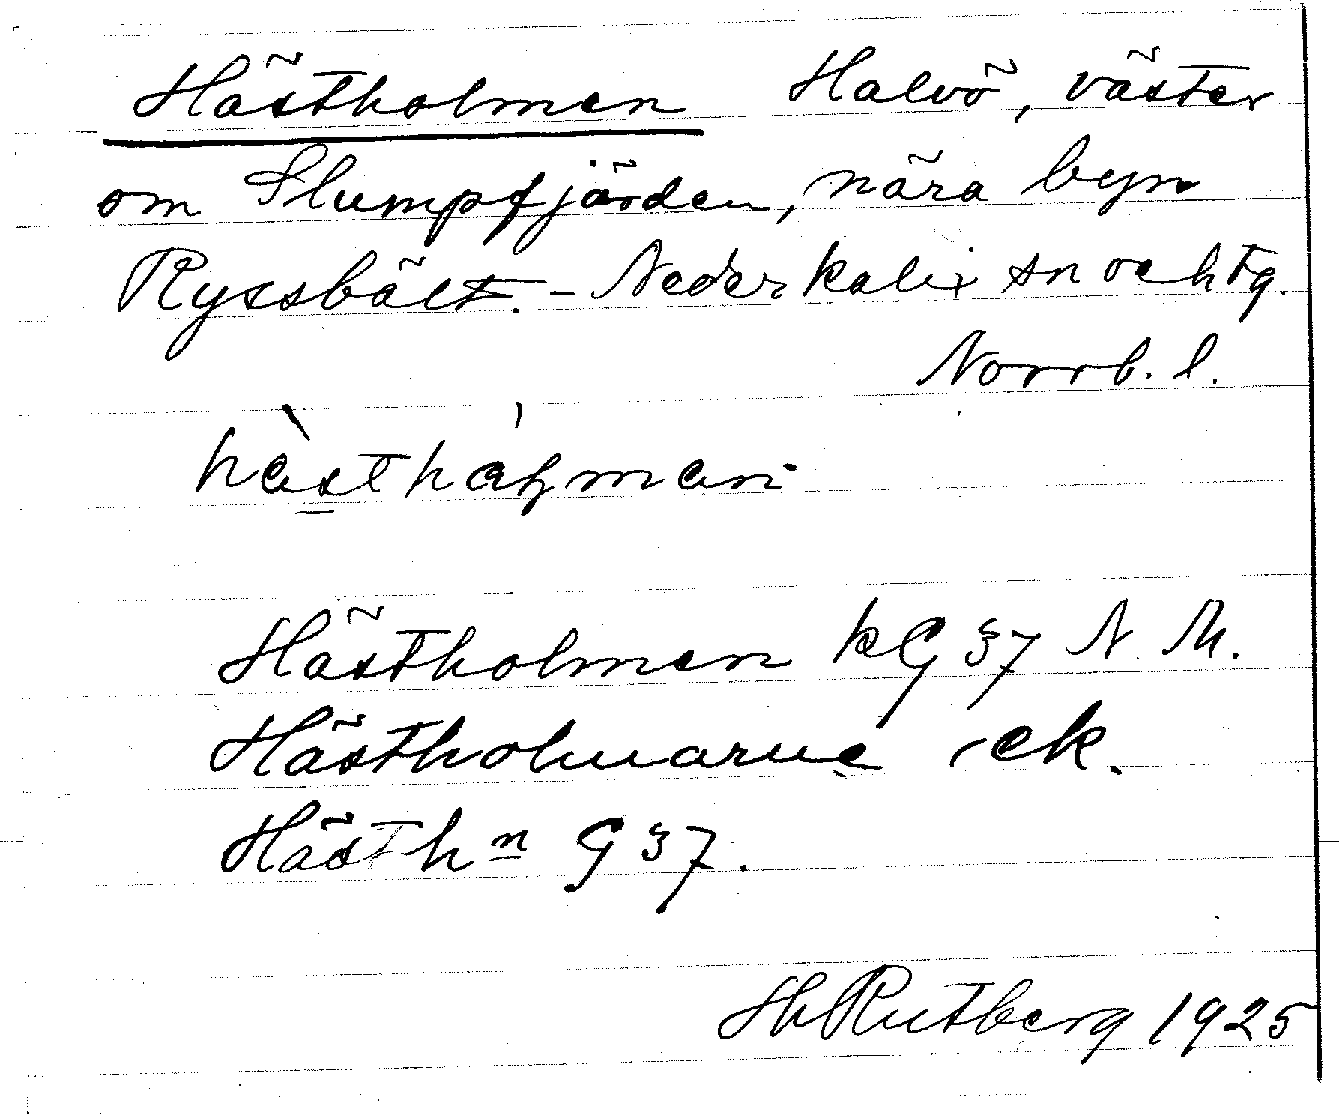 Hästholmen Halvö, väster
om Slumpfjärden, nära byn
Ryssbält. - Nederkalix sn och tg.
Norrb. l.
Hästholmen kG 37 N. M.
Hästholmarne ek.
Hästhn G 37.
Hh Rutberg 1925